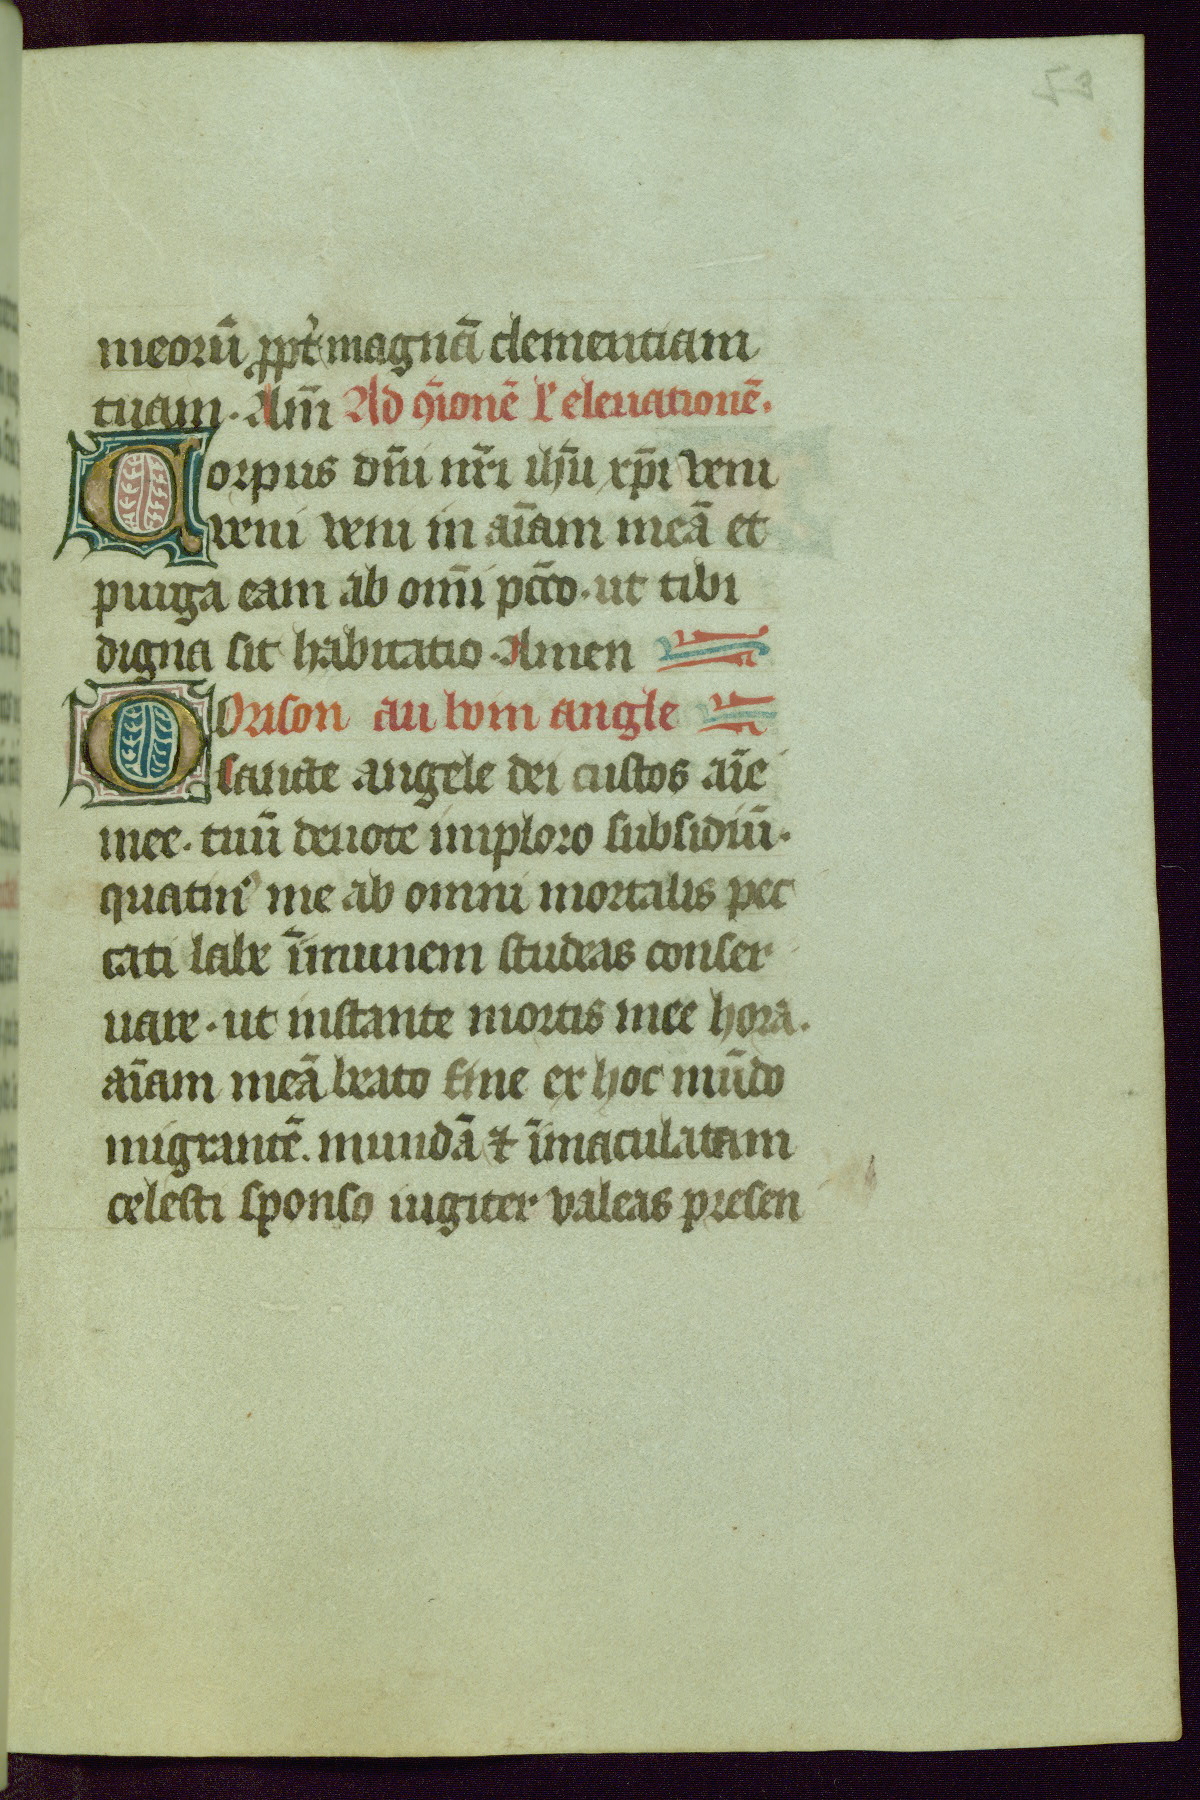 meorū ꝓpt̃ magnā clementiam
tuam. Am̄ Ad ꝯ̄ionē ł eleuationē.
Corpus dn̄i nr̄i ih̄u xp̄i veni
veni veni in aīam meā et
purga eam ab om̄i pcc̄o. ut tibi
digna sit habitatio. Amen
Orison au bom angle
O sancte angele dei custos aīe
mee. tuū deuote imploro subsidiū.
quatinꝰ me ab omni mortalis pec
cati labe īmunem studeas conser
uare. ut instante mortis mee hora.
aīam meā beato fine ex hoc mūdo
migrantē. mundā ⁊ īmaculatam
celesti sponso iugiter valeas presen